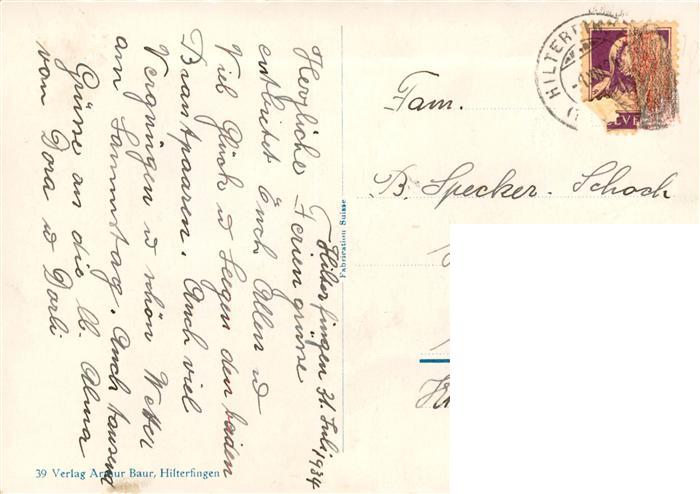 Hilterfingen 31. Juli 1934
Herzliche Feriengrüsse
entbietet Euch Allen u
Viel Glück u Segen den beiden
Brautpaaren. Auch viel
Vergnügen u schön Wetter
am Samstag. Auch tausend
Grüsse an die lb. Alma
von Dora u Dorli
Fam.
B. Specker-Schoch
Fabrication Suisse
39 Verlag Arthur Baur, Hilterfingen
HILTERF